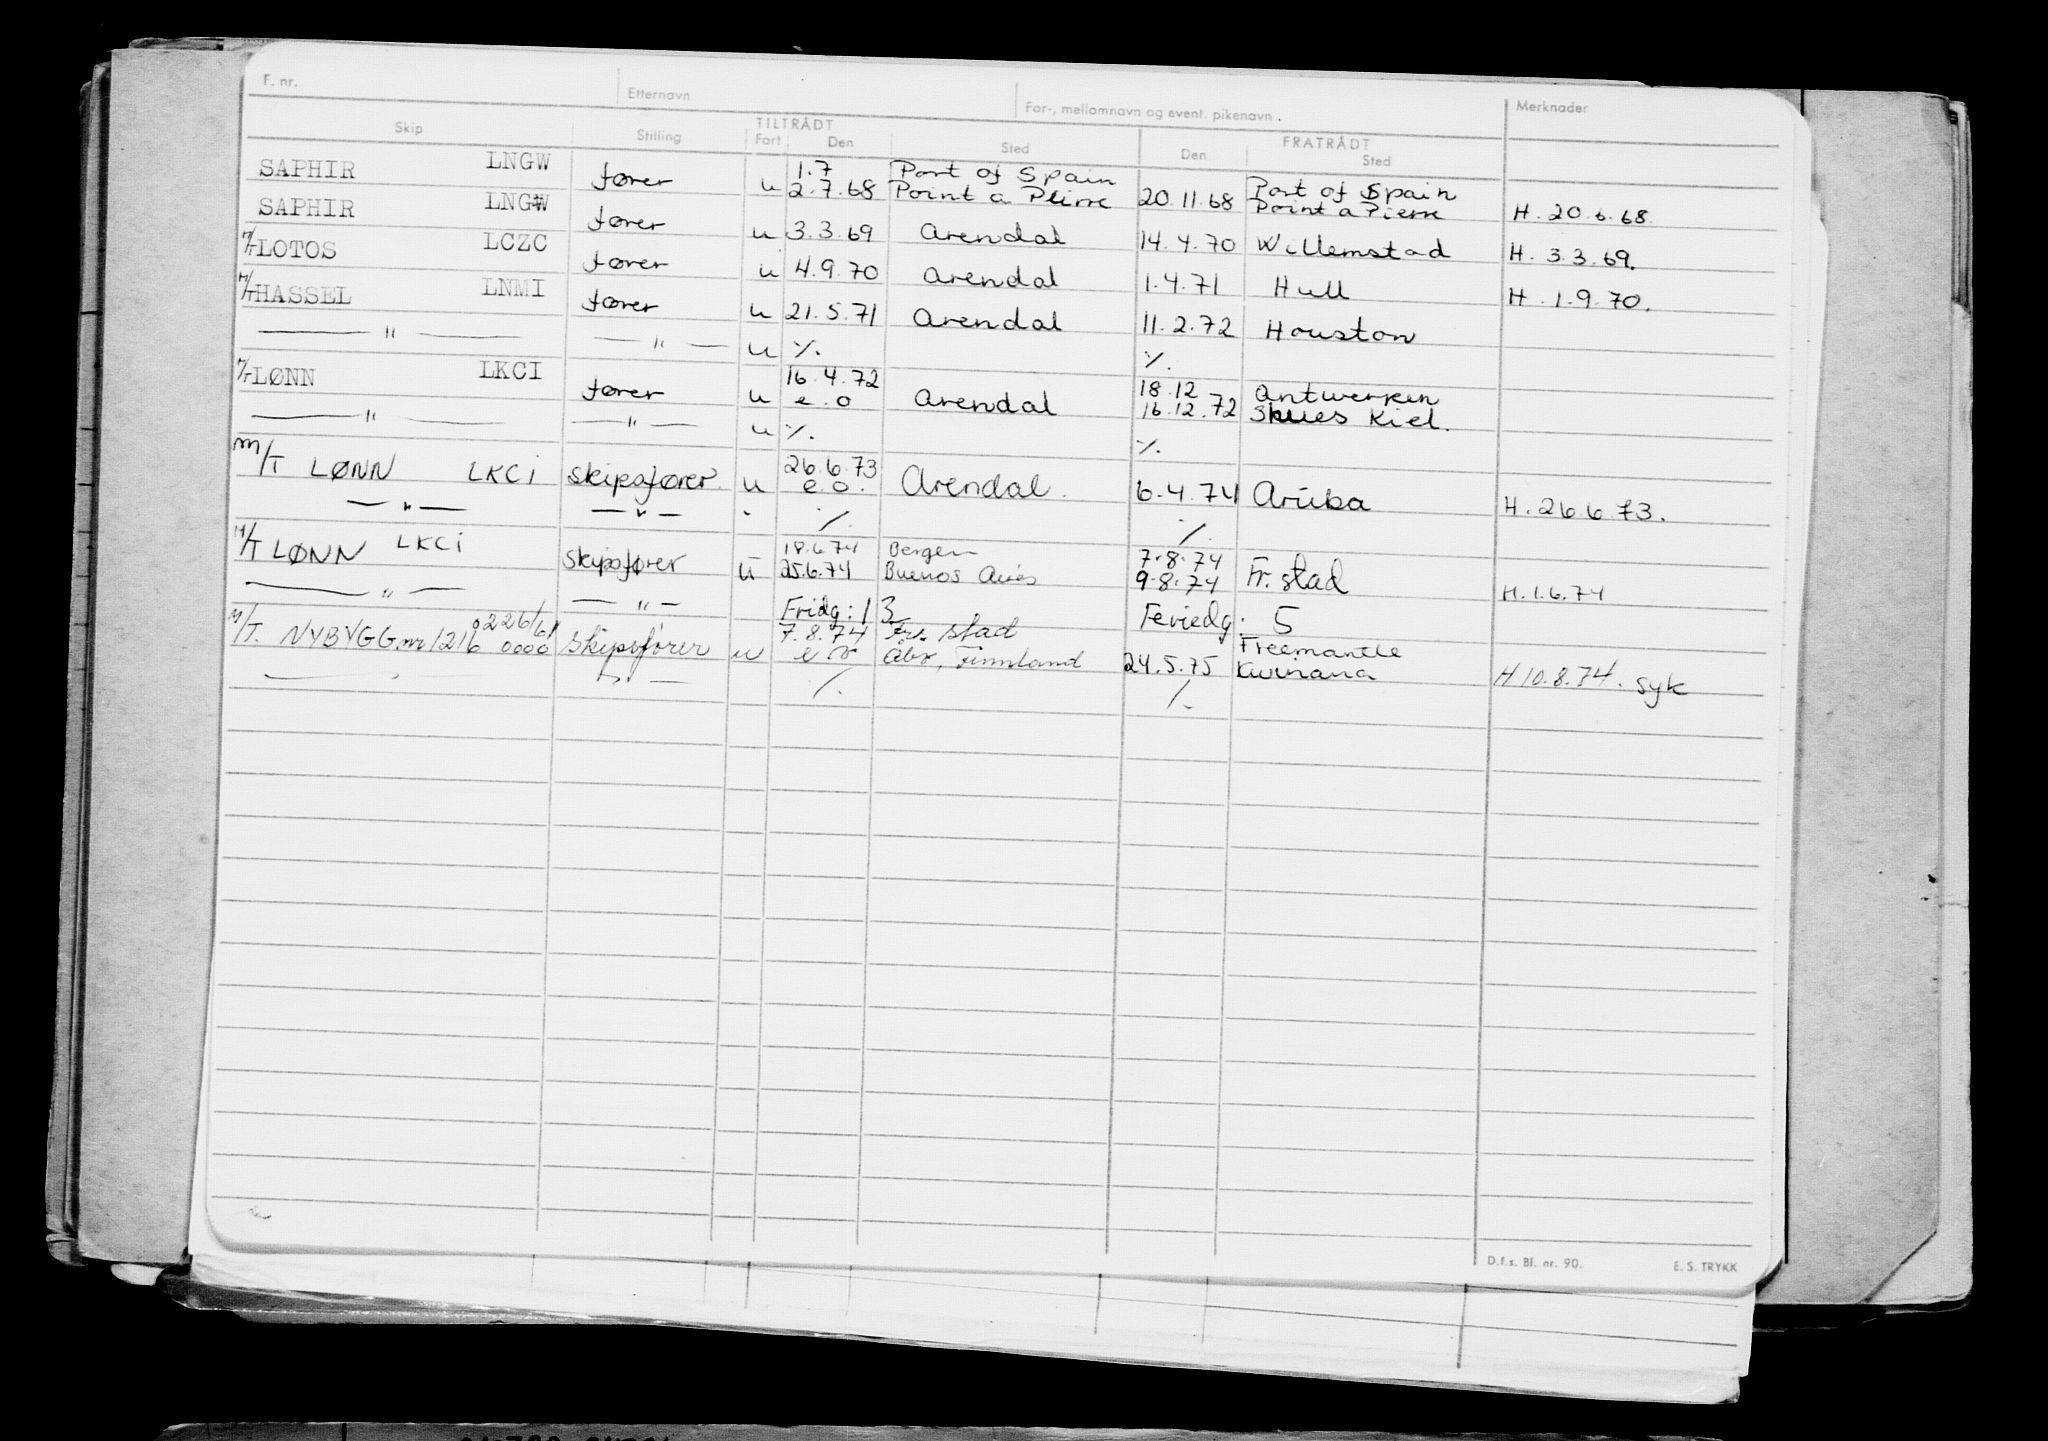 F. nr. Etternavn For-, mellomnavn og event. pikenavn . Merknader
TILTRÅDT FRATRÅDT
Skip Stilling Fart Den Sted Den Sted
1.7 Port of Spain Port of Spain
SAPHIR LNGW fører u 2.7.68 Point a Pierre 20.11.68 Point a Pierre H. 20.6.68.
SAPHIR LNGW fører u 3.3.69 Arendal 14.4.70 Willemstad H. 3.3.69.
M/T LOTOS LCZC fører u 4.9.70 Arendal 1.4.71 Hull H. 1.9.70.
M/T HASSEL LNMI fører u 21.5.71 Arendal 11.2.72 Houston
— " — — " — u ./. ./.
16.4.72 18.12 Antwerpen
M/T LØNN LKCI fører u e.o Arendal 16.12.72 Kiel.
— " — — " — u ./. ./.
26.6.73
M/T LØNN LKCI skipsfører u e.o. Arendal. 6.4.74 Aruba H. 26.6.73.
— " — — " — ./. ./.
18.6.74 Bergen 7.8.74
M/T LØNN LKCI skipsfører u 25.6.74 Buenos Aires 9.8.74 Fr.stad H.1.6.74
— " — — " — Fridg: 13 Feriedg: 5
0226/61 7.8.74 Frs. stad Freemantle
M/T. NYBYGG.nr 1216 0000 skipsfører u e o Åbo, Finnland 24.5.75 Kwinana H 10.8.74. syk
— " — — " — ./. ./.
D.f.s. Bl. nr. 90. E. S. TRYKK